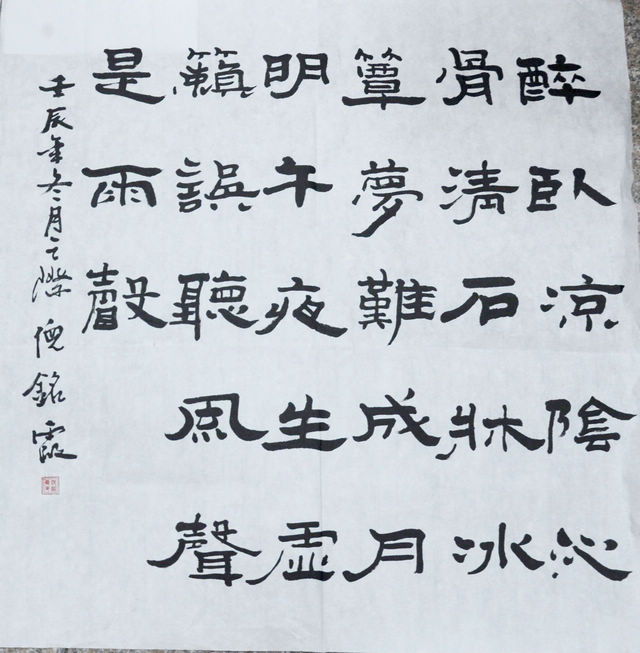 醉臥凉陰沁
骨清石牀冰
簟夢難成月
明午夜生虛
籟誤聽風聲
是雨聲
壬辰年冬月之際倪銘霞